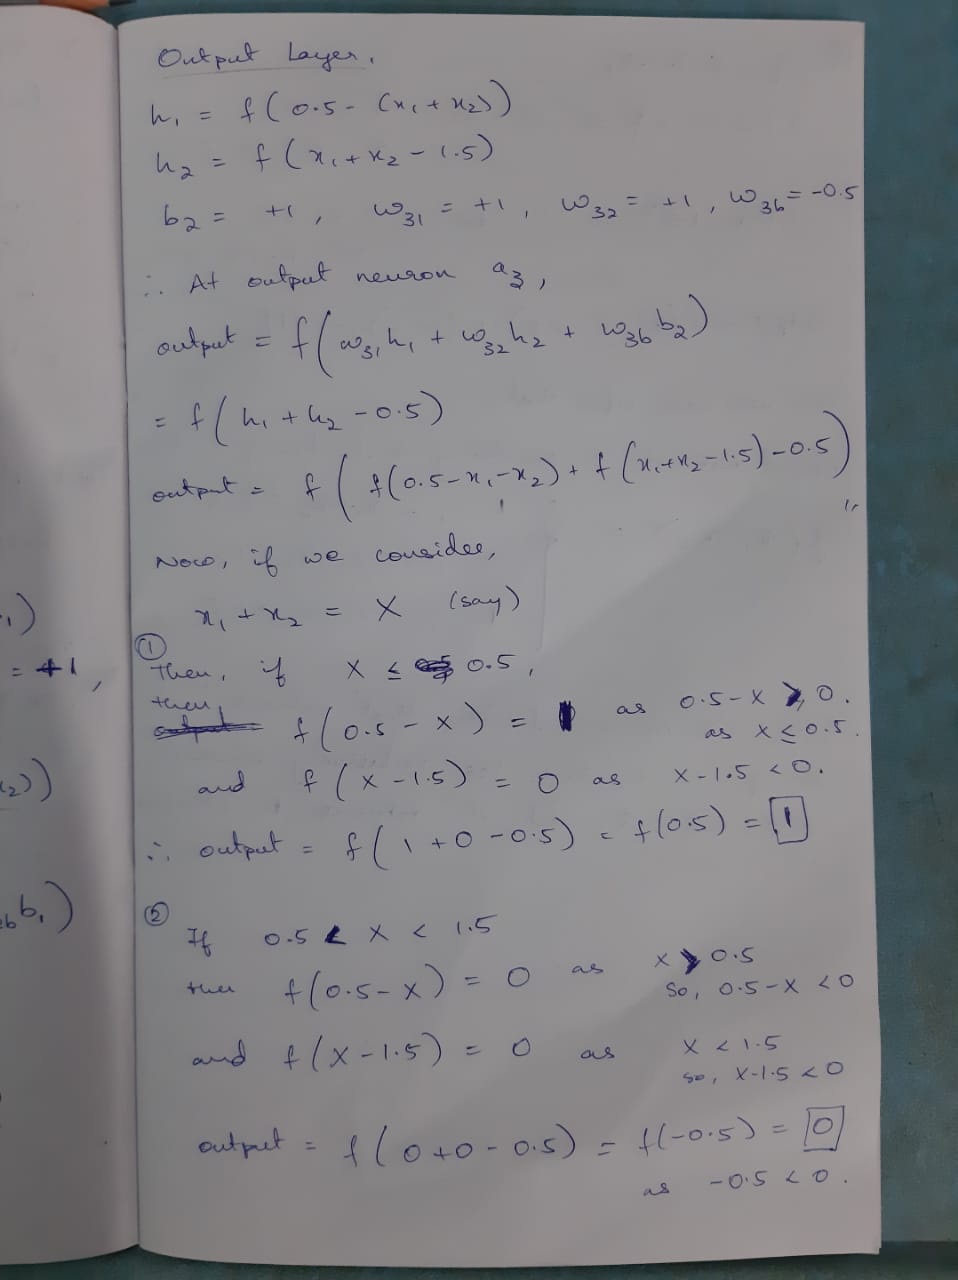 Output Layer.
h₁ = f(0.5 - (x₁ + x₂))
h₂ = f(x₁ + x₂ - 1.5)
b₂ = +1, w₃₁ = +1, w₃₂ = +1, w₃b = -0.5
∴ At output neuron a₃,
output = f(w₃₁h₁ + w₃₂h₂ + w₃b b₂)
= f(h₁ + h₂ - 0.5)
output = f(f(0.5-x₁-x₂) + f(x₁+x₂-1.5) - 0.5)
Now, if we consider,
x₁ + x₂ = X (say)
①
Then, if X ≤ 0.5,
then, f(0.5 - X) = 1 as 0.5-X ≥ 0.
as X ≤ 0.5.
and f(X - 1.5) = 0 as X-1.5 < 0.
∴ output = f(1 + 0 - 0.5) = f(0.5) = 1
②
If 0.5 < X < 1.5
then f(0.5-X) = 0 as X > 0.5
So, 0.5-X < 0
and f(X-1.5) = 0 as X < 1.5
so, X-1.5 < 0
output = f(0+0-0.5) = f(-0.5) = 0
as -0.5 < 0.